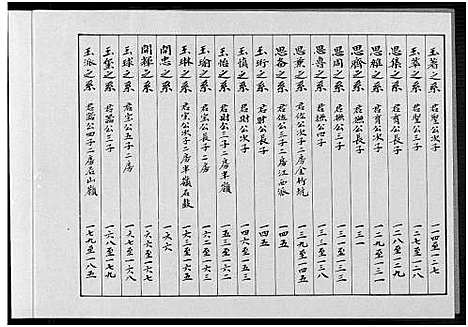 玉著之系 君聖公次子 一一四至一二七
玉華之系 君聖公三子 一二七至一二八
思集之系 君育公長子 一二八至一二九
思雅之系 君育公次子 一二九至一三一
思齊之系 君撫公長子 一三一
思周之系 君撫公三子 一三一至一三三
思喜之系 君撫公四子 一三三至一三八
思兼之系 君佐公次子二房金竹坑 一三九至一四五
思各之系 君佐公三子二房江西派 一四五
玉珩之系 君財公長子 一四五
玉慎之系 君財公次子 一四六至一五一
玉怡之系 君財公三子二房半嶺 一五一至一六二
玉瑜之系 君宝公長子二房 一六二至一六三
玉琳之系 君宝公次子二房半嶺石鼓 一六三至一六五
開忠之系 一六六
開輝之系 一六六至一六七
玉球之系 君宝公五子二房 一六七至一六八
玉璽之系 君器公三子 一六八至一七九
玉派之系 君器公四子二房石山嶺 一七九至一八五